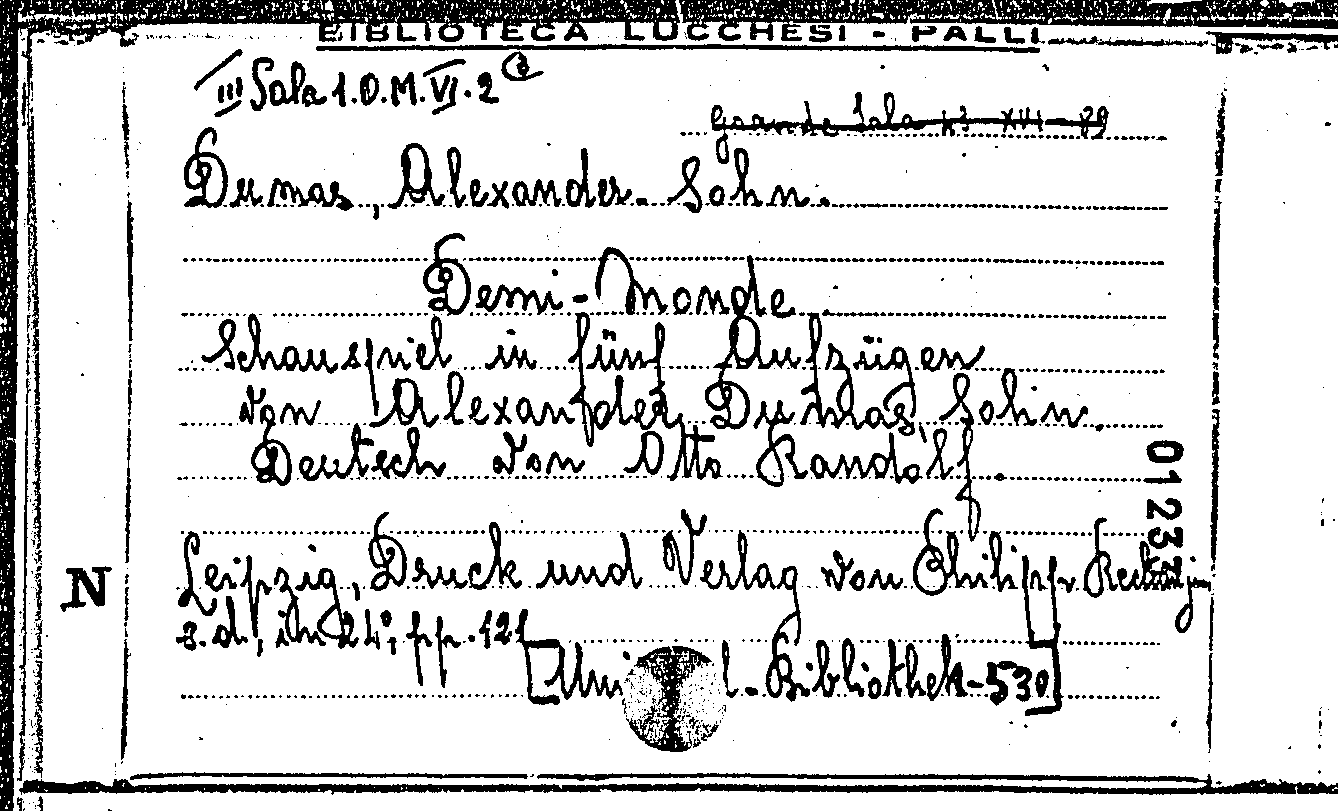 BIBLIOTECA LUCCHESI - PALLI
III Sala 1.O.M.VI.2
Grande Sala XVI - 89
Dumas, Alexander. Sohn.
Demi-Monde
Schauspiel in fünf Aufzügen
von Alexander Dumas, Sohn.
Deutsch von Otto Randolf.
Leipzig, Druck und Verlag von Philipp Reclam jun
s.d., in 24°, pp. 121
[Uni l.-Bibliothek-530]
01233
N